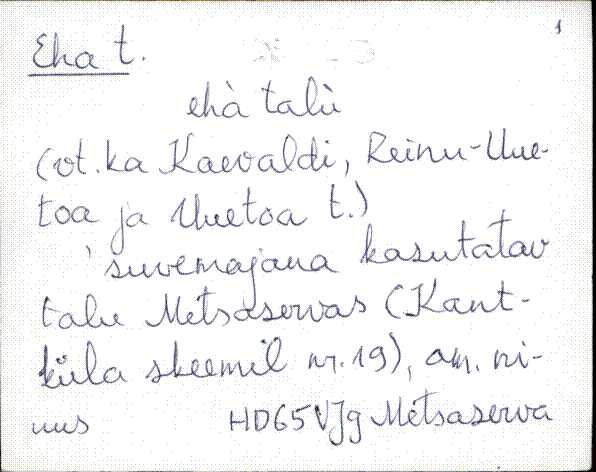 1
Eha t.
ehà talù
(vt. ka Kaevaldi, Reinu-Uue-
toa ja Uuetoa t.)
'suvemajana kasutatav
talu Metsaservas (Kant-
küla skeemil nr. 19), am. ni-
mus HD65VJg Metsaserva